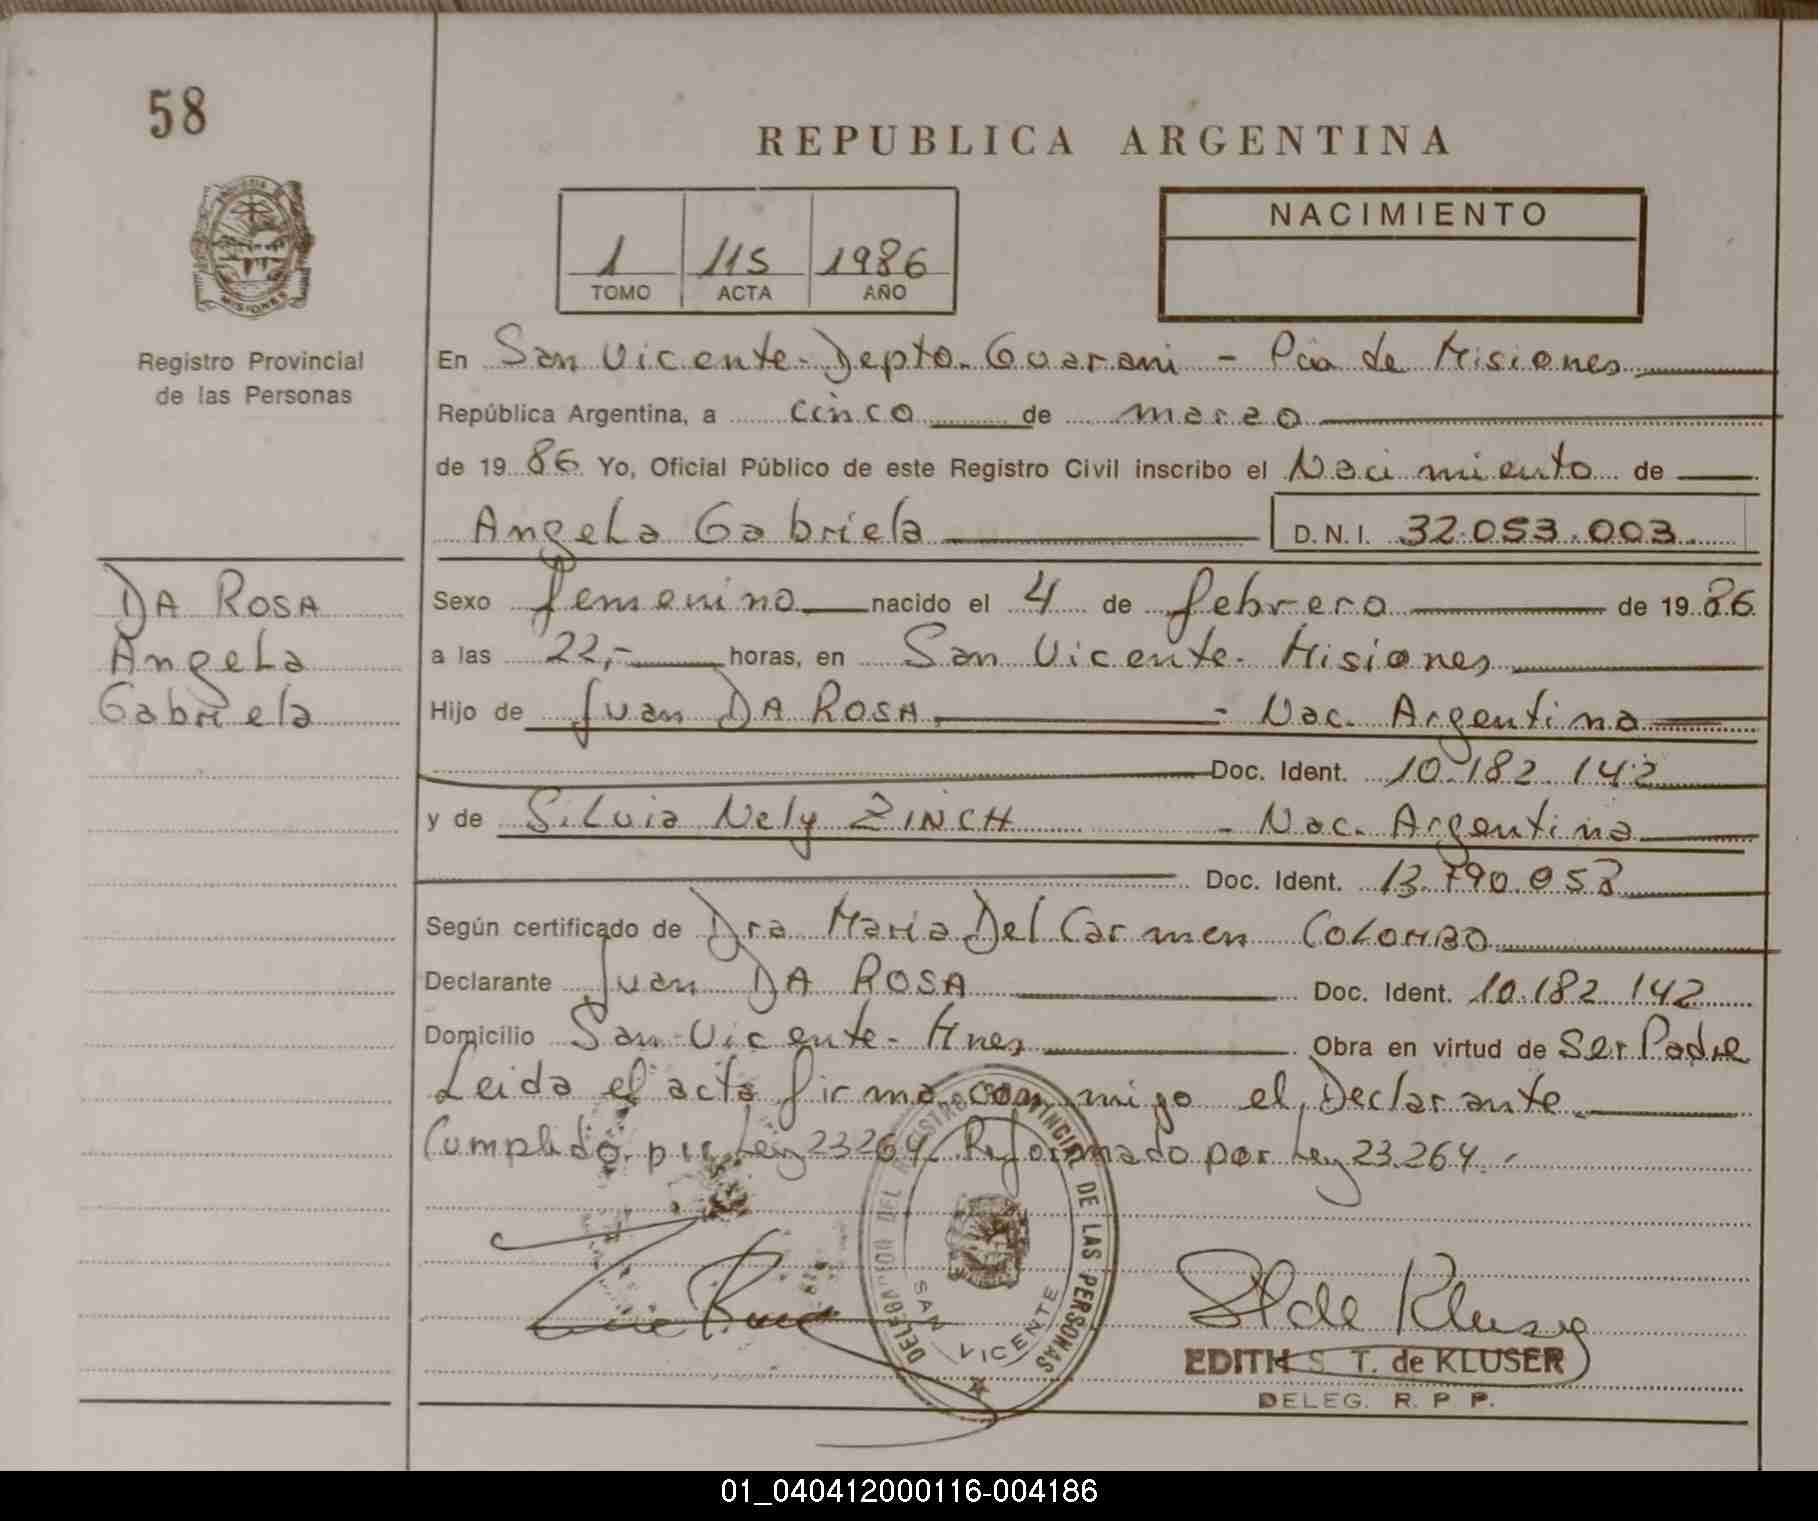 58
REPUBLICA ARGENTINA
1 115 1986
TOMO ACTA AÑO
NACIMIENTO
MISIONES
Registro Provincial
de las Personas
En San Vicente - Depto. Guarani - Pcia de Misiones
República Argentina, a cinco de marzo
de 1986 Yo, Oficial Público de este Registro Civil inscribo el Nacimiento de
Angela Gabriela D.N.I. 32.053.003
DA ROSA
Angela
Gabriela
Sexo femenino nacido el 4 de febrero de 1986
a las 22,- horas, en San Vicente - Misiones
Hijo de Juan DA ROSA - Nac. Argentina
Doc. Ident. 10.182.142
y de Silvia Nely ZINCH - Nac. Argentina
Doc. Ident. 13.790.053
Según certificado de Dra Maria Del Carmen COLOMBO
Declarante Juan DA ROSA Doc. Ident. 10.182.142
Domicilio San Vicente - Mnes Obra en virtud de Ser Padre
Leida el acta firma conmigo el Declarante
Cumplido por Ley 23264. Reformado por Ley 23.264.-
DELEGACION DEL REGISTRO PROVINCIAL DE LAS PERSONAS
SAN VICENTE
St de Kluser
EDITH S. T. de KLUSER
DELEG. R. P. P.
01_040412000116-004186